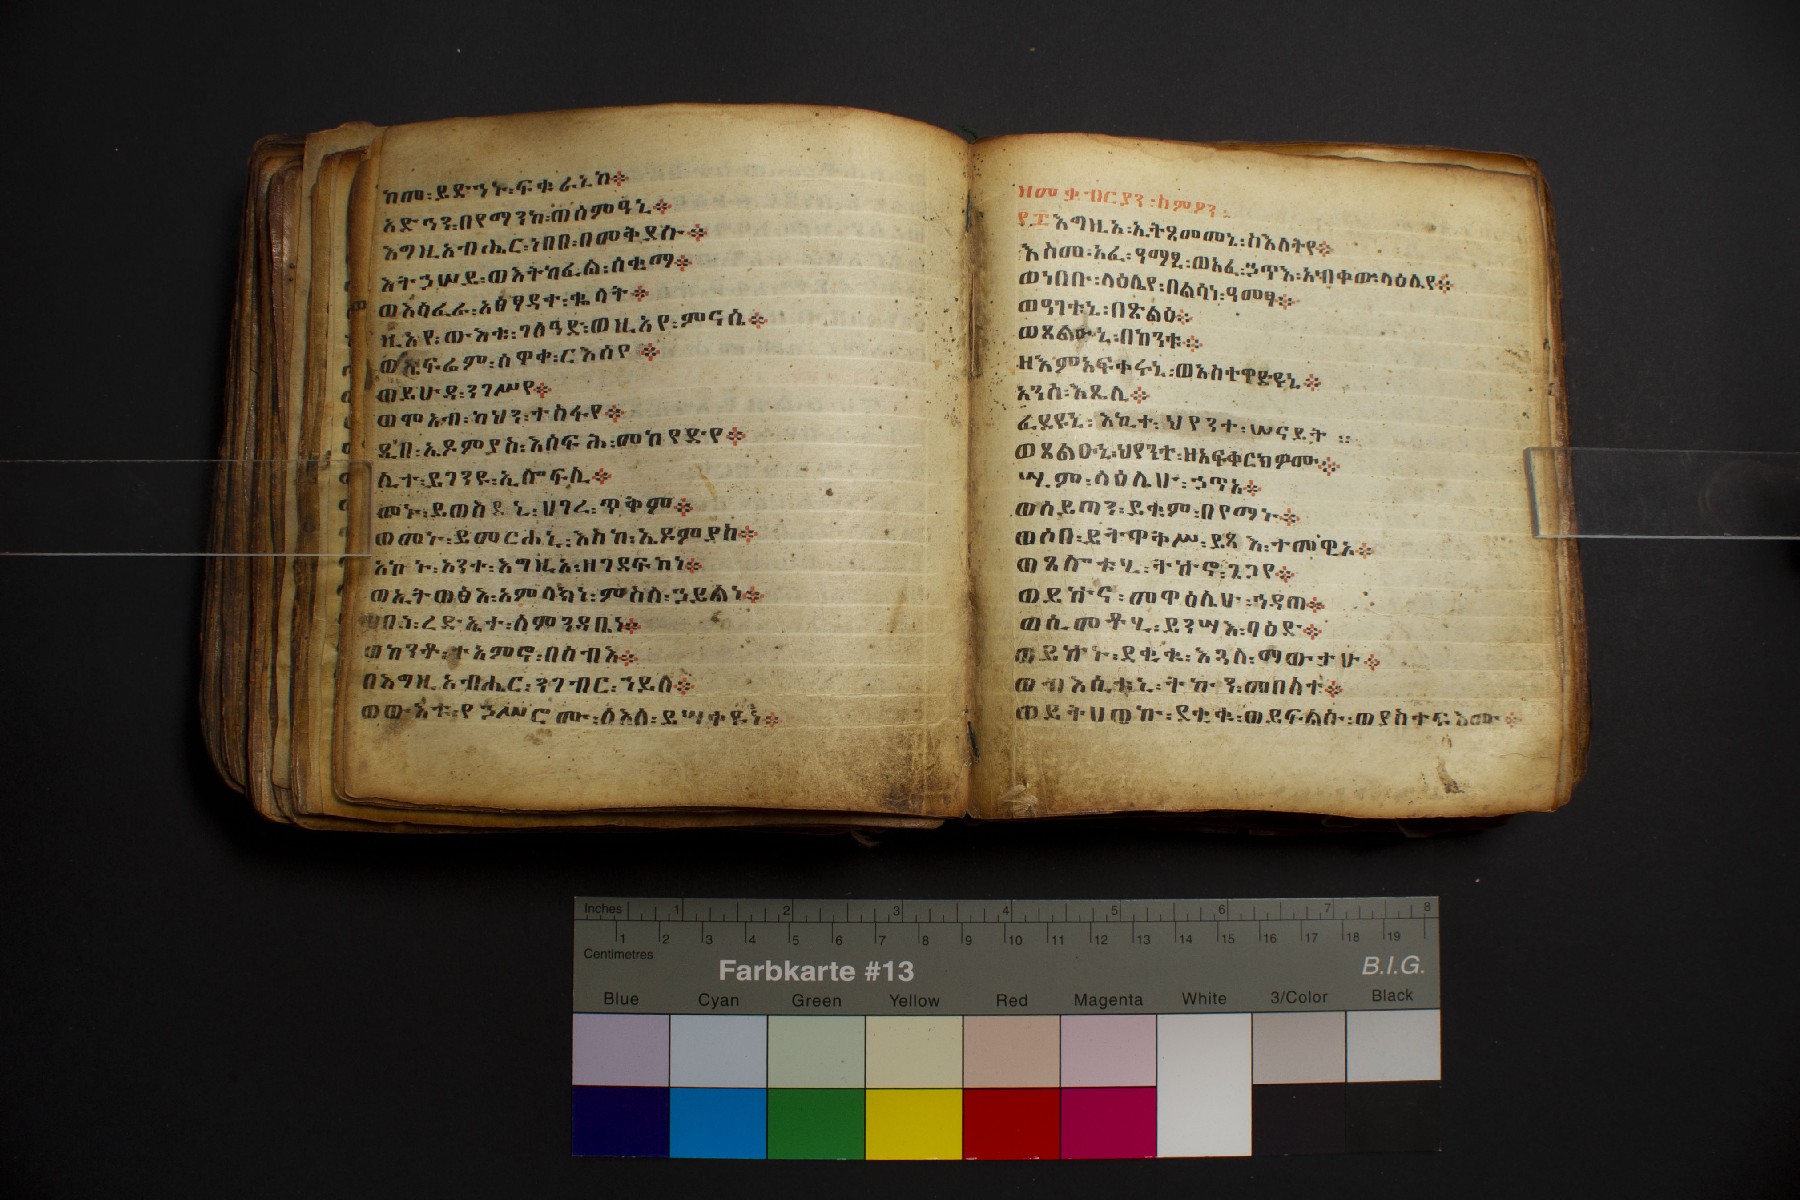 ከመ፡ይድኅኑ፡ፍቁራኒከ፨
አድኅን፡በየማንከ፡ወሰምዓኒ፨
እግዚአብሔር፡ነበበ፡በመቅደሱ፨
እትኃሠይ፡ወእትከፈል፡ሰቂማ፨
ወእሳፈራ፡አፅፃዳተ፡ቈላት፨
ዚአየ፡ውእቱ፡ገለዓድ፡ወዚአየ፡ምናሴ፨
ወኤፍሬም፡ሰዋቀ፡ርእሰየ፨
ወይሁዳ፡ንገሥየ፨
ወሞአብ፡ካህን፡ተስፋየ፨
ዲበ፡ኤዶምያስ፡እሰፍሕ፡መከየድየ፨
ሊተ፡ይገንዩ፡ኢሎፍሊ፨
መኑ፡ይወስደኒ፡ሀገረ፡ጥቅም፨
ወመኑ፡ይመርሐኒ፡እስከ፡ኤዶምያስ፨
አኮኑ፡አንተ፡እግዚአ፡ዘገደፍከነ፨
ወኢትወፅእ፡አምላክነ፡ምስለ፡ኃይልነ፨
ሀበነ፡ረድኤተ፡በምንዳቤነ፨
ወከንቶ፡ተአምኖ፡በሰብእ፨
በእግዚአብሔር፡ንገብር፡ኀይለ፨
ወውእቱ፡የኃሥሮሙ፡ለእለ፡ይሣቀዩነ፨
ዘመቃብርያን፡ለምዖን፡
፻፰እግዚአ፡ኢትጸመመኒ፡ስእለትየ፨
እስመ፡አፈ፡ዓማፂ፡ወአፈ፡ኃጥእ፡አብቀው፡ላዕሌየ፨
ወነበቡ፡ላዕሌየ፡በልሳነ፡ዓመፃ፨
ወዓገቱኒ፡በጽልዕ፨
ወጸልዉኒ፡በከንቱ፨
ዘእምአፍቀሩኒ፡ወአስተዋደዩኒ፨
አንሰ፡እጼሊ፨
ፈደዩኒ፡እኪተ፡ህየንተ፡ሠናይት።
ወጸልዑኒ፡ህየንተ፡ዘአፍቀርክዎሙ፨
ሢም፡ላዕሌሁ፡ኃጥአ፨
ወሰይጣን፡ይቁም፡በየማኑ፨
ወሶበ፡ይትዋቀሥ፡ይፃእ፡ተመዊኦ፨
ወጸሎቱሂ፡ትኩኖ፡ጌጋየ፨
ወይኩና፡መዋዕሊሁ፡ኅዳጠ፨
ወሲመቶሂ፡ይንሣእ፡ባዕድ፨
ወይኩኑ፡ደቂቁ፡እጓለ፡ማውታሁ፨
ወብእሲቱኒ፡ትኩን፡መበለተ፨
ወይትሀወኩ፡ደቂቁ፡ወይፍልሱ፡ወያስተፍእሙ፨
Inches 1 2 3 4 5 6 7 8
1 2 3 4 5 6 7 8 9 10 11 12 13 14 15 16 17 18 19
Centimetres
Farbkarte #13
B.I.G.
Blue Cyan Green Yellow Red Magenta White 3/Color Black